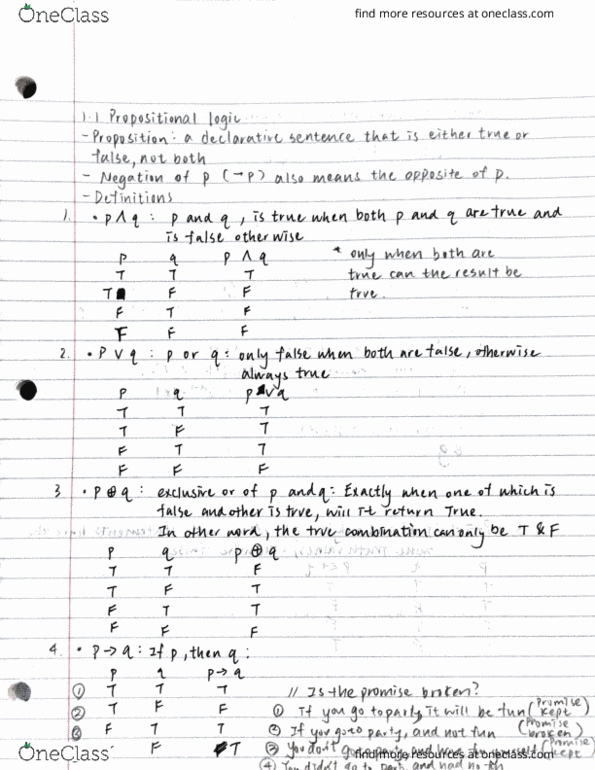 OneClass
find more resources at oneclass.com
1.1 Propositional logic
- Proposition: a declarative sentence that is either true or
false, not both
- Negation of p (¬p) also means the opposite of p.
- Definitions
1. • p ∧ q : p and q , is true when both p and q are true and
is false otherwise
p q p ∧ q * only when both are
T T T true can the result be
T F F true.
F T F
F F F
2. • P ∨ q : p or q : only false when both are false, otherwise
always true
p q p ∨ q
T T T
T F T
F T T
F F F
3 • p ⊕ q : exclusive or of p and q: Exactly when one of which is
false and other is true, will it return True.
In other word, the true combination can only be T & F
p q p ⊕ q
T T F
T F T
F T T
F F F
4. • p → q : If p, then q :
p q p → q
① T T T // Is the promise broken?
② T F F ① If you go to party, it will be fun (promise kept)
③ F T T ② If you go to party, and not fun (promise broken)
F T ③ You don't go
OneClass
find more resources at oneclass.com
④ You didn't go to and had no